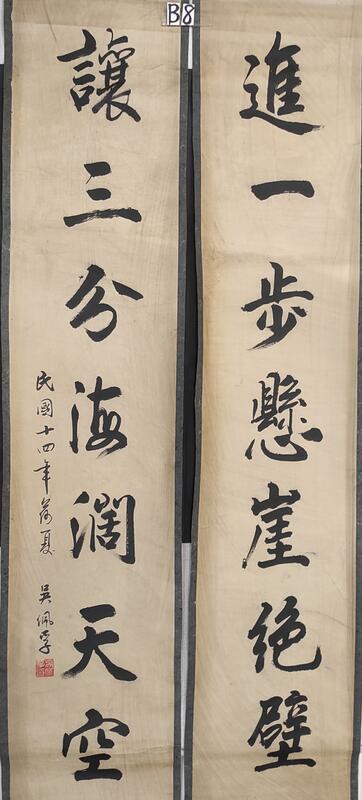 B8
進一步懸崖絕壁
讓三分海濶天空
民國十四年荷夏 吳佩孚